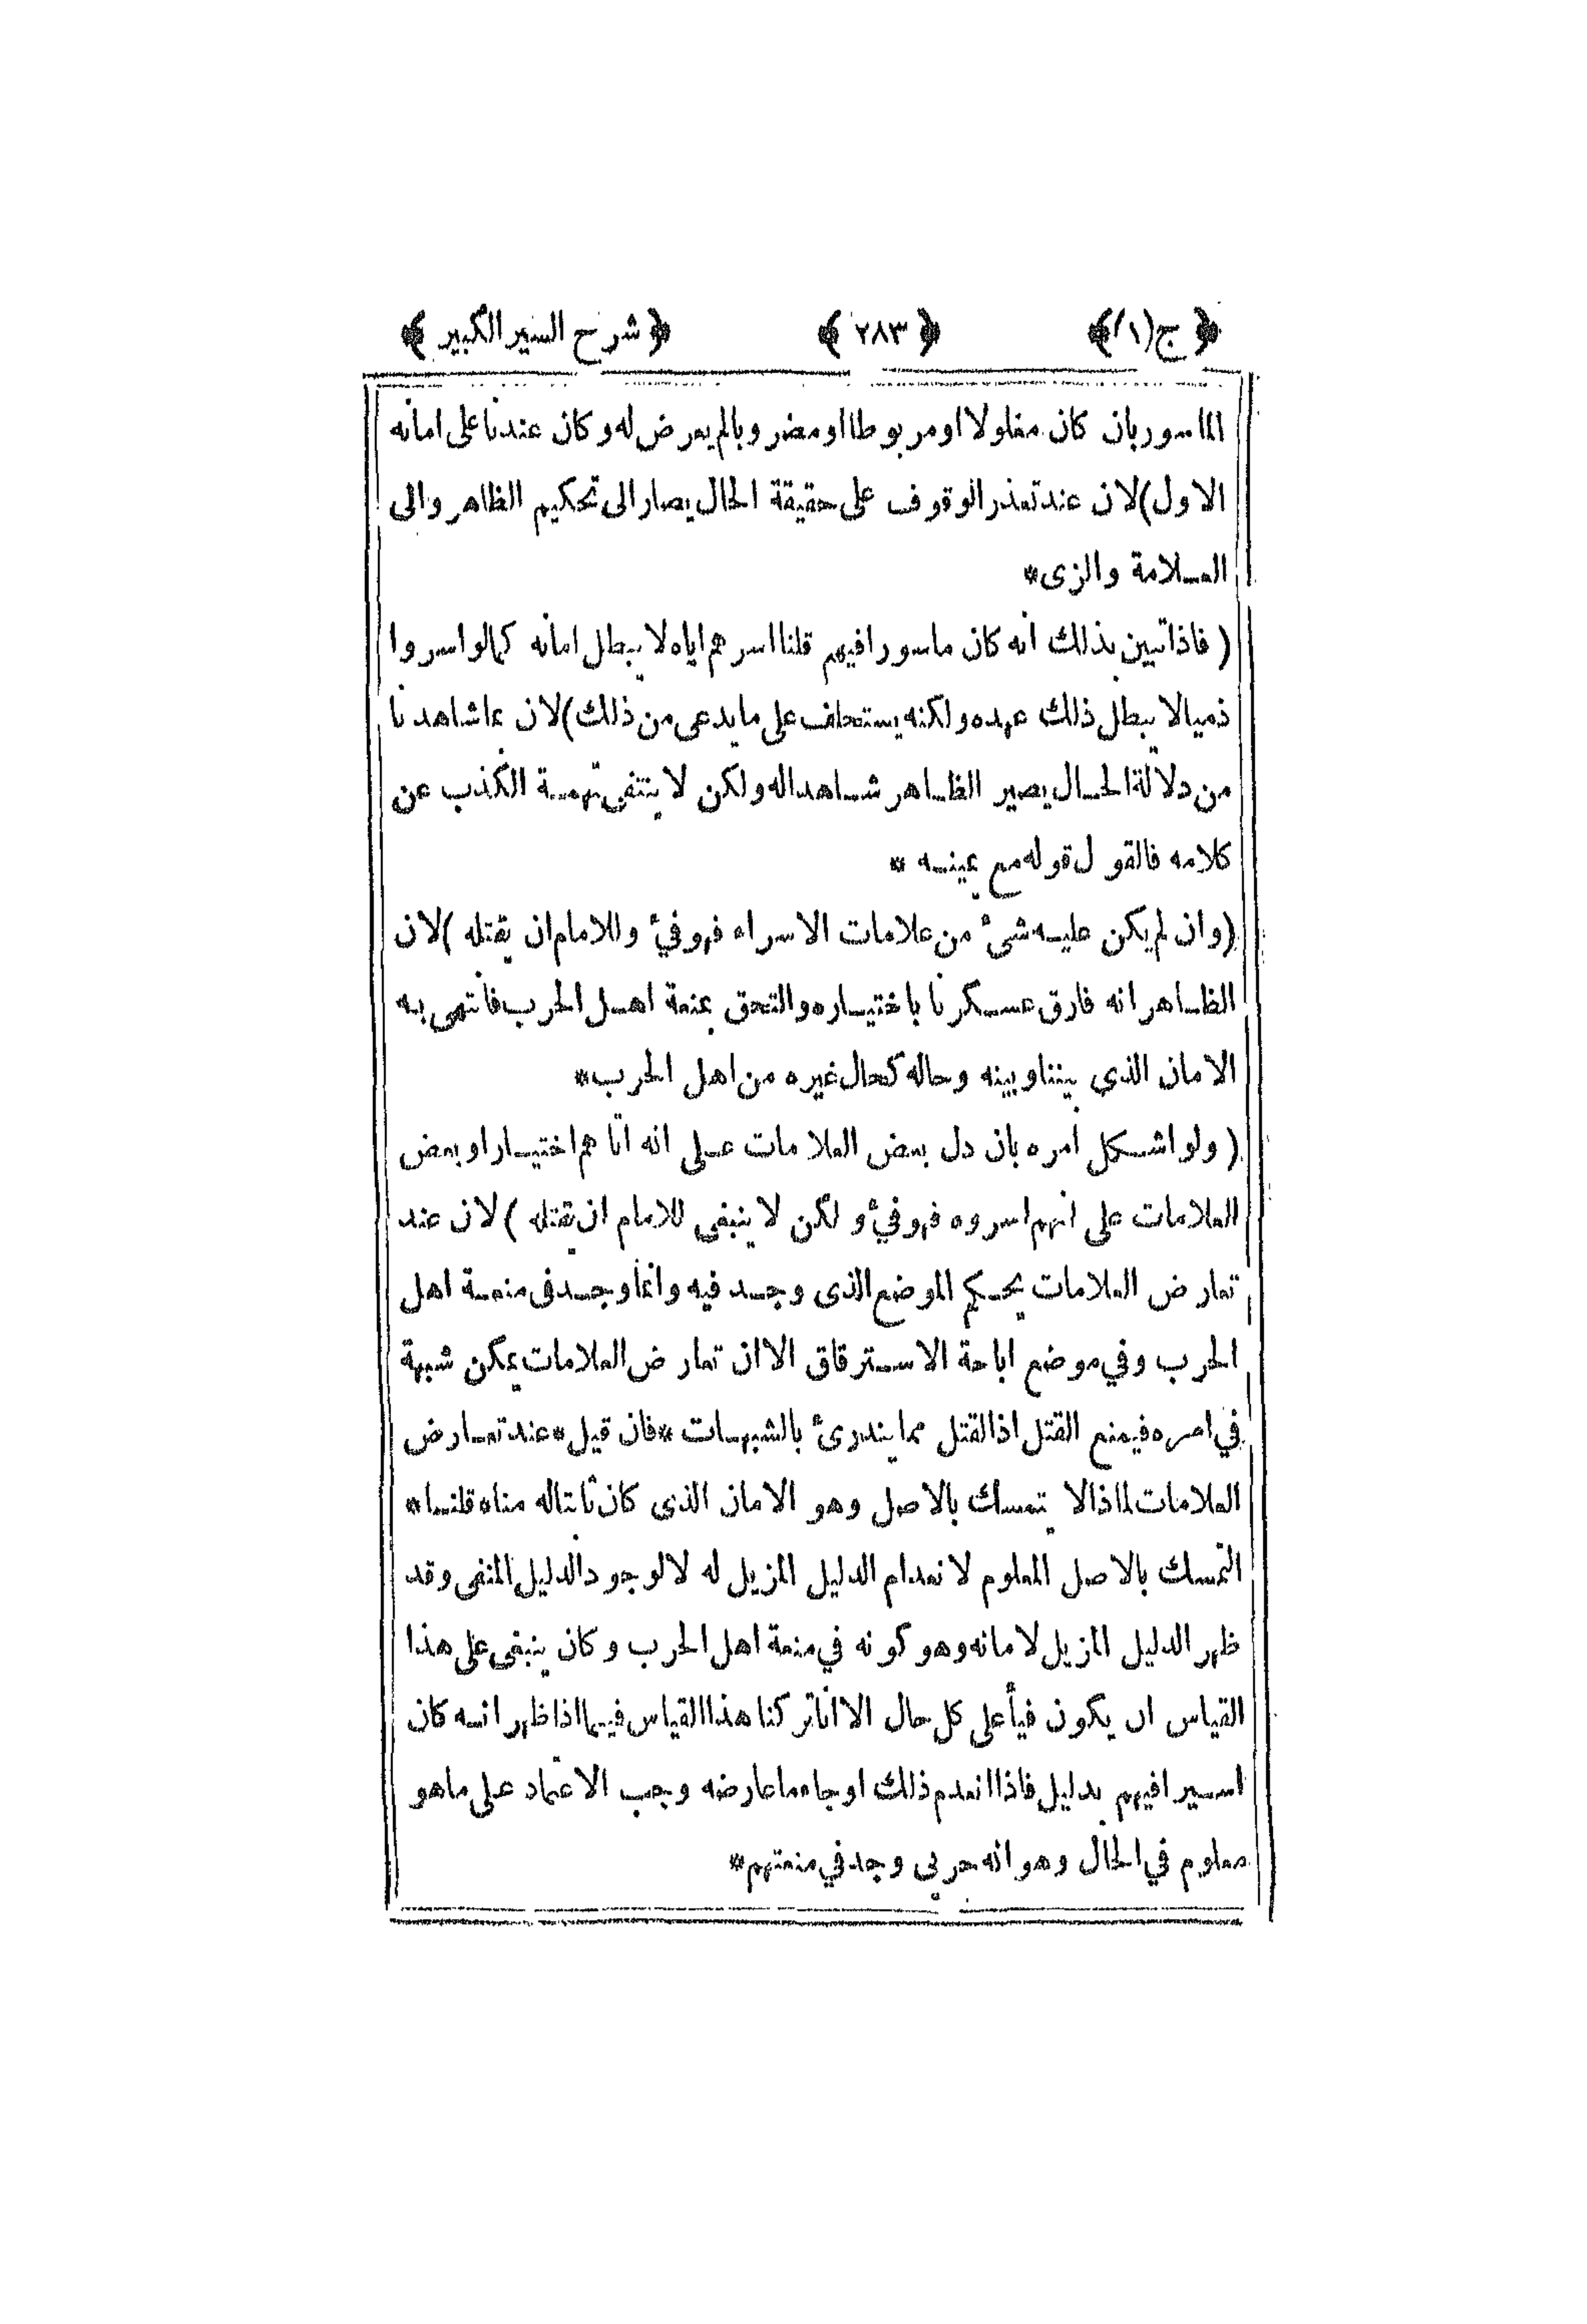 ﴿ ج(١) ﴾ ﴿ ٢٨٣ ﴾ ﴿ شرح السير الكبير ﴾
الماسور بان كان مغلولا او مربوطا او مضروبا لم يعرض له وكان عندنا على امانه
الاول) لان عند تعذر الوقوف على حقيقة الحال يصار الى تحكيم الظاهر والى
العلامة والزى*
( فاذا تبين بذلك انه كان ماسورا فيهم قلنا اسرهم اياه لا يبطل امانه كما لو اسروا
ذميا لا يبطل ذلك عهده ولكنه يستحلف على ما يدعى من ذلك) لان بما شاهدنا
من دلالة الحال يصير الظاهر شاهدا له ولكن لا ينتفى تهمة الكذب عن
كلامه فالقول قوله مع يمينه *
(وان لم يكن عليه شئ من علامات الاسراء فهو فئ وللامام ان يقتله ) لان
الظاهر انه فارق عسكرنا باختياره والتحق بمنعة اهل الحرب فانتهى به
الامان الذي بيننا وبينه وحاله كحال غيره من اهل الحرب*
( ولو اشكل امره بان دل بعض العلامات على انه اتاهم اختيارا وبعض
العلامات على انهم اسروه فهو فئ ولكن لا ينبغى للامام ان يقتله ) لان عند
تعارض العلامات يحكم الموضع الذى وجد فيه وانما وجد فى منعة اهل
الحرب وفي موضع اباحة الاسترقاق الا ان تعارض العلامات يمكن شبهة
في امره فيمنع القتل اذ القتل مما يندرئ بالشبهات *فان قيل* عند تعارض
العلامات لما ذا لا يتمسك بالاصل وهو الامان الذى كان ثابتا له منا* قلنا*
التمسك بالاصل المعلوم لانعدام الدليل المزيل له لا لوجود الدليل المنفى وقد
ظهر الدليل المزيل لامانه وهو كونه في منعة اهل الحرب وكان ينبغى على هذا
القياس ان يكون فيأ على كل حال الا انا تركنا هذا القياس فيما اذا ظهر انه كان
اسيرا فيهم بدليل فاذا انعدم ذلك او جاء ما عارضه وجب الاعتماد على ما هو
معلوم في الحال وهو انه حربى وجد في منعتهم*